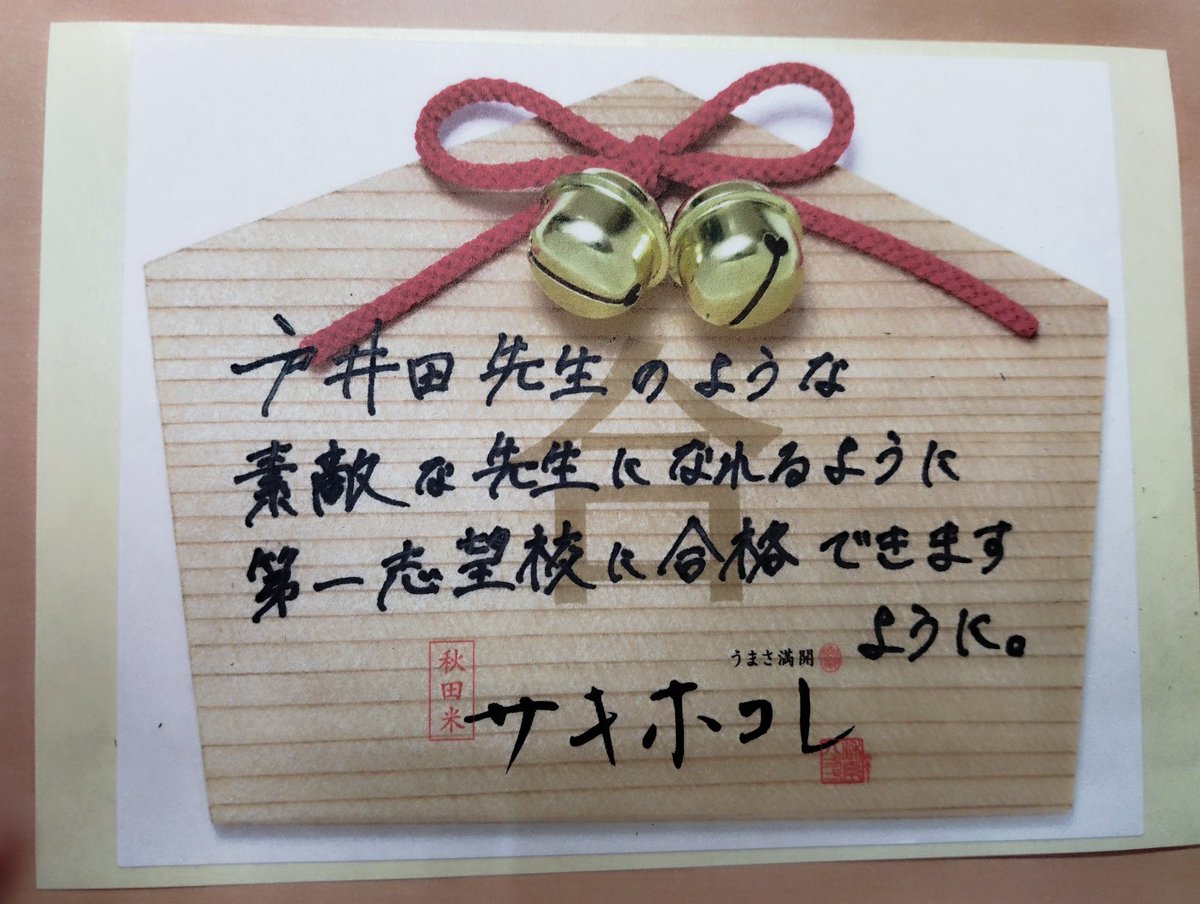 合
戸井田先生のような
素敵な先生になれるように
第一志望校に合格できます
ように。
うまさ満開
秋田米
サキホコレ